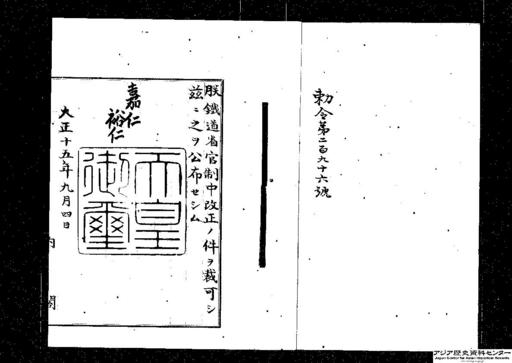 勅令第二百九十六號
朕鐵道省官制中改正ノ件ヲ裁可シ
茲ニ之ヲ公布セシム
嘉仁
裕仁
天皇
御璽
大正十五年九月四日
内閣
アジア歴史資料センター
Japan Center for Asian Historical Records